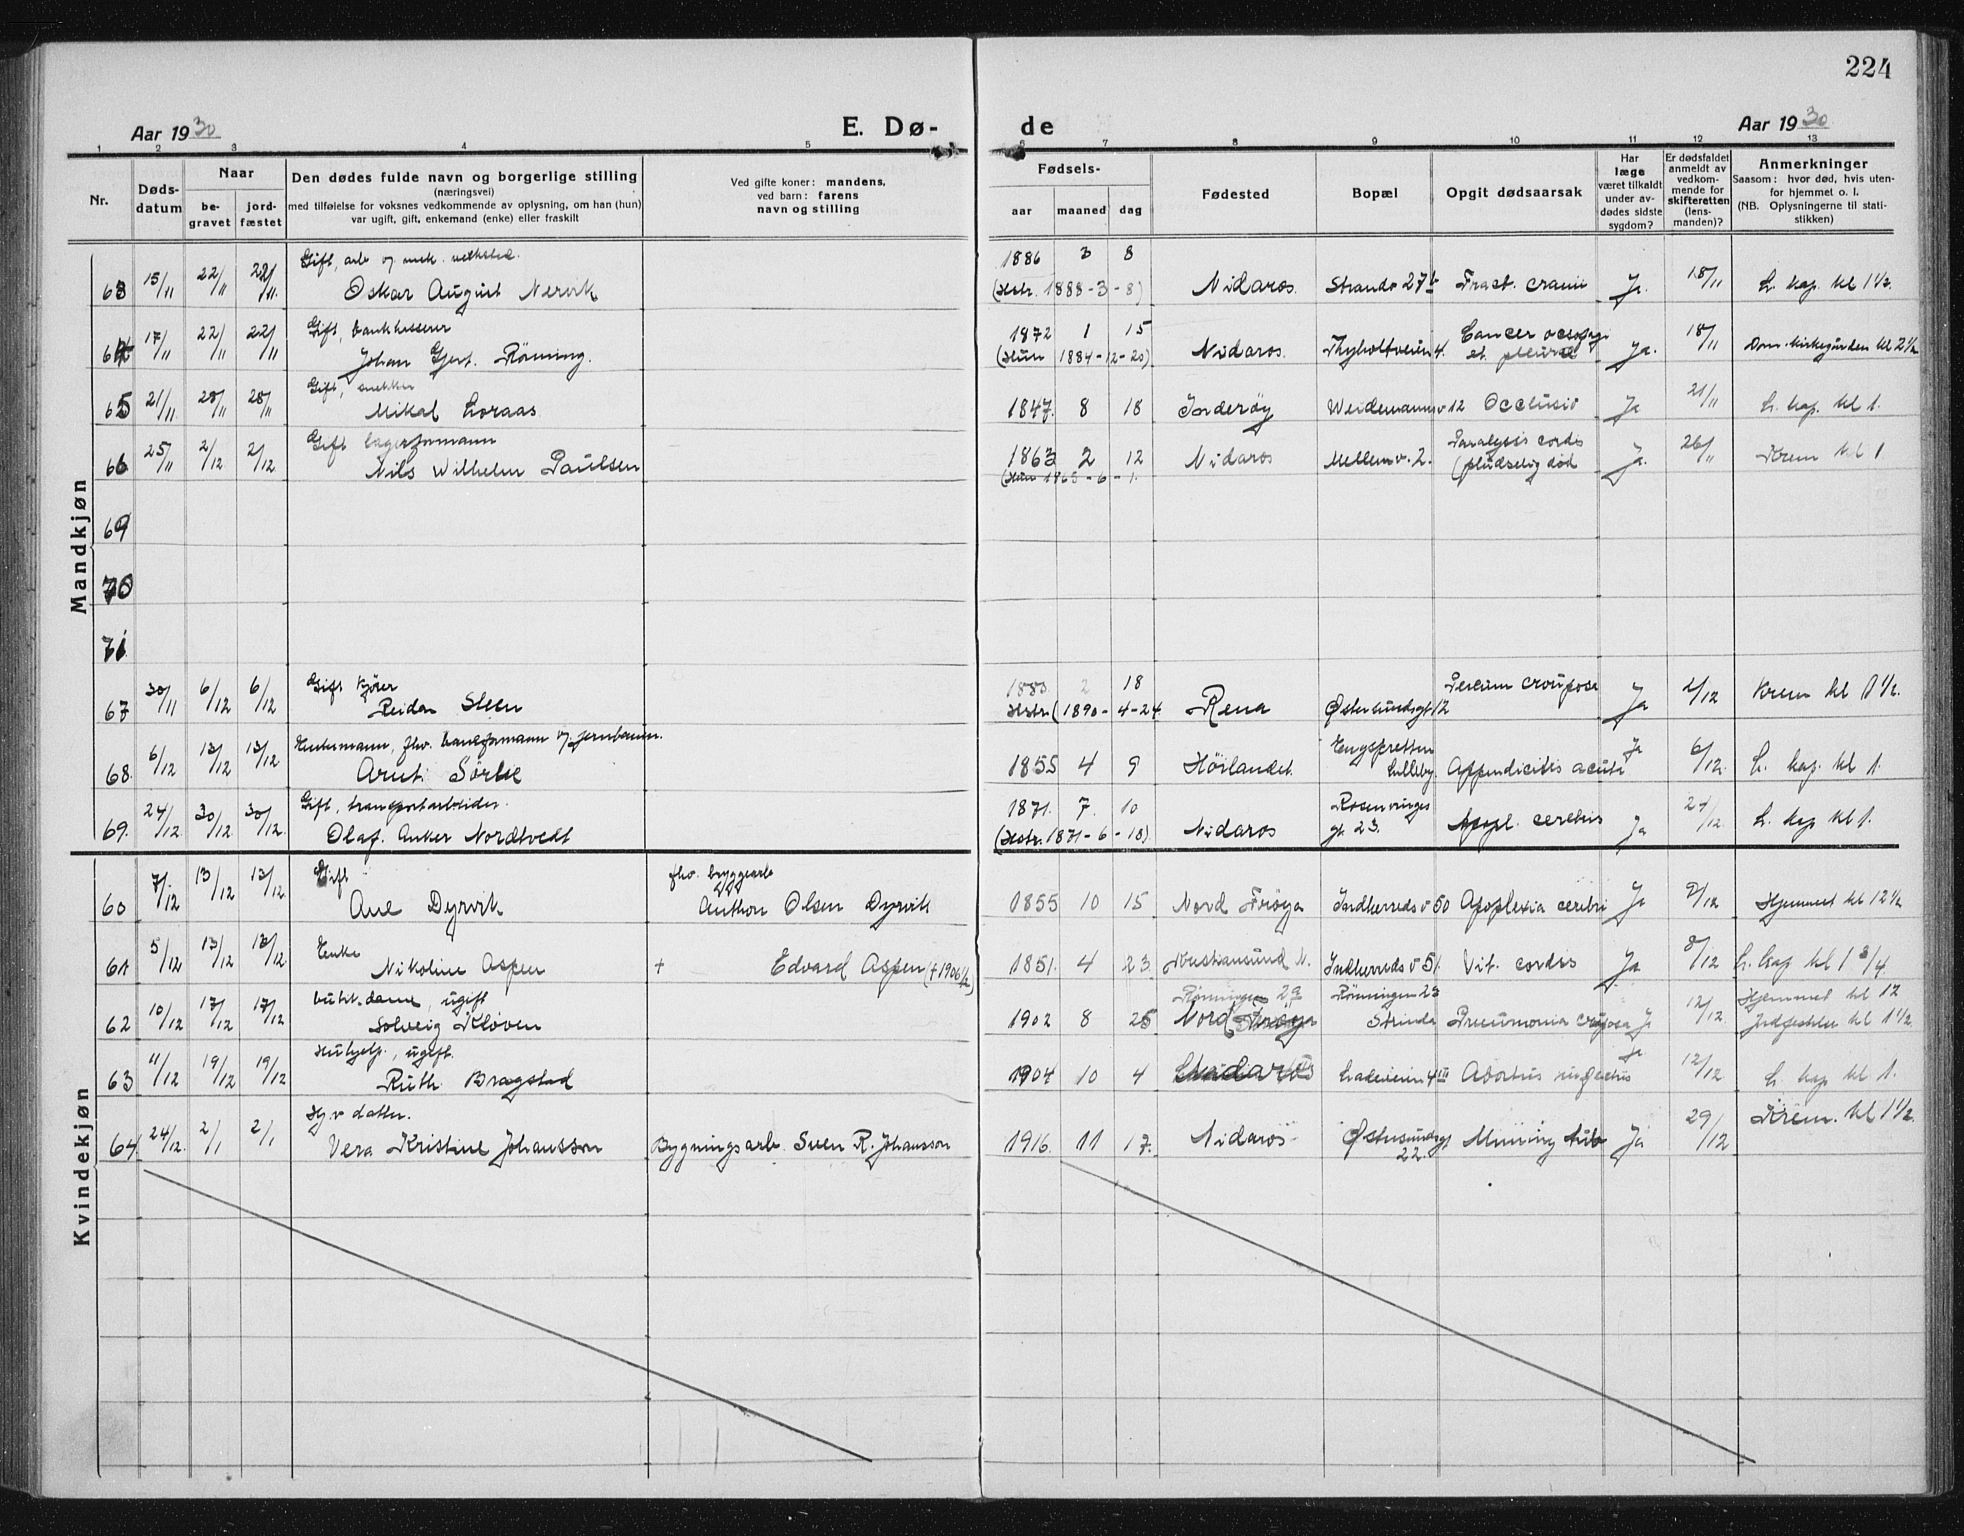 224
Aar 1930
E. Dø-
de
Aar 1930
1 2 3 4 5 6 7 8 9 10 11 12 13
Nr.
Døds-
datum
Naar
be-
gravet
jord-
fæstet
Den dødes fulde navn og borgerlige stilling
(næringsvei)
med tilføielse for voksnes vedkommende av oplysning, om han (hun)
var ugift, gift, enkemand (enke) eller fraskilt
Ved gifte koner: mandens,
ved barn: farens
navn og stilling
Fødsels-
aar
maaned
dag
Fødested
Bopæl
Opgit dødsaarsak
Har
læge
været tilkaldt
under av-
dødes sidste
sygdom?
Er dødsfaldet
anmeldt av
vedkom-
mende for
skifteretten
(lens-
manden)?
Anmerkninger
Saasom: hvor død, hvis uten-
for hjemmet o. l.
(NB. Oplysningerne til stati-
stikken)
Mandkjøn
Gift, arb v/ mek. verksted. 1886 3 8
63 15/11 22/11 22/11 Oskar August Nervik (Hstr. 1888-3-8) Nidaros. Strandv 27b Fract. cranii Ja. 18/11 L. kap. kl 1½.
Gift, bankkasserer 1872 1 15 Cancer
64 17/11 22/11 22/11 Johan Gjert. Rönning. (Hun 1884-12-20) Nidaros. Thyholtveien 4. et pleura Ja. 18/11 Dom. kirkegården kl 2½
Gift, snekker
65 21/11 28/11 28/11 Mikal Loraas 1847. 8 18 Inderöy Weidemannsv 12 Occlusio Ja 21/11 L. kap. kl 1.
Gift lagerformann Paralysis cordis
66 25/11 2/12 2/12 Nils Wilhelm Paulsen 1863 2 12 Nidaros Mellemv. 2. (pludselig död Ja. 26/11 Krem kl 1
(Hun 1865-6-1.
69
70
71
Gift kjörer 1883. 2 18
67 30/11 6/12 6/12 Reidar Steen Hstr. (1890-4-24 Rena Östersundsgt 12 croupose Ja 2/12 Krem kl 1½.
Enkemann, fhv. baneformann v/ jernbanen.
68. 6/12 13/12 13/12 Arnt Sörlie 1855 4 9 Höilandet. Lilleby. Appendicitis acuta Ja 6/12. L. kap. kl 1.
Gift, transportarbeider. 1871. 7. 10 Rosenvinges
69. 24/12. 30/12 30/12. Olaf Anker Nordtvedt (Hstr. 1871-6-10) Nidaros gt 23. Apopl. cerebri Ja 27/12. L. kap kl 1.
Kvindekjøn
Gift fhv. bryggearb
60 7/12 13/12 13/12 Ane Dyrvik Anthon Olsen Dyrvik 1855 10 15 Nord Fröya Indherredsv 50 Apoplexia cerebri Ja 9/12 Hjemmet kl 12½
Enke
61 5/12 13/12 13/12 Nikoline Aspen + Edvard Aspen (+1906) 1851. 4 23. Kristiansund N. Indherredsv 51. Vit. cordis Ja 8/12 L. kap kl 1 3/4
butik.dame, ugift Rönningen 29 Rönningen 23 Hjemmet kl 12
62 10/12 17/12 17/12 Solveig Klöven 1902 8 25 Nord Fröya Strinda Pneumonia cruposa Ja 12/12. Jordfestelse kl 1½.
Hushjelp., ugift.
63 11/12 19/12 19/12 Ruth Bragstad 1904 10 4 Nidaros Ladeveien 4III Abortus Ja 12/12 L. kap kl 1.
Hj.v datter.
64 24/12. 2/1 2/1 Vera Kristine Johansson Bygningsarb. Sven R. Johansson 1916. 11 17. Nidaros Östersundsgt 22. Mening tub Ja 29/12 Krem. kl 1½.